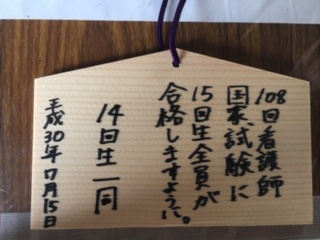 108回看護師
国家試験に
15回生全員が
合格しますように。
14回生一同
平成30年7月15日